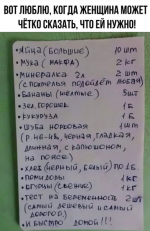 ВОТ ЛЮБЛЮ, КОГДА ЖЕНЩИНА МОЖЕТ
ЧЁТКО СКАЗАТЬ, ЧТО ЕЙ НУЖНО!
• Яйца (большие) 10 шт
• Мука (макфа) 2 кг
• Минералка 2л 2 шт
(стожелья подойдёт любая)
• Бананы (желтые) 5шт
• Зел. горошек 1Б
• Кукуруза 1Б
• Шуба норковая 1шт
(р. 44-46, чёрная, гладкая,
длинная, с капюшоном,
на поясе)
• Хлеб (чёрный, белый) по 1Б.
• Помидоры 1кг
• Огурцы (свежие) 1кг
• Тест на беременность 2шт
(самый дешёвый и самый
дорогой)
• И быстро домой!!!